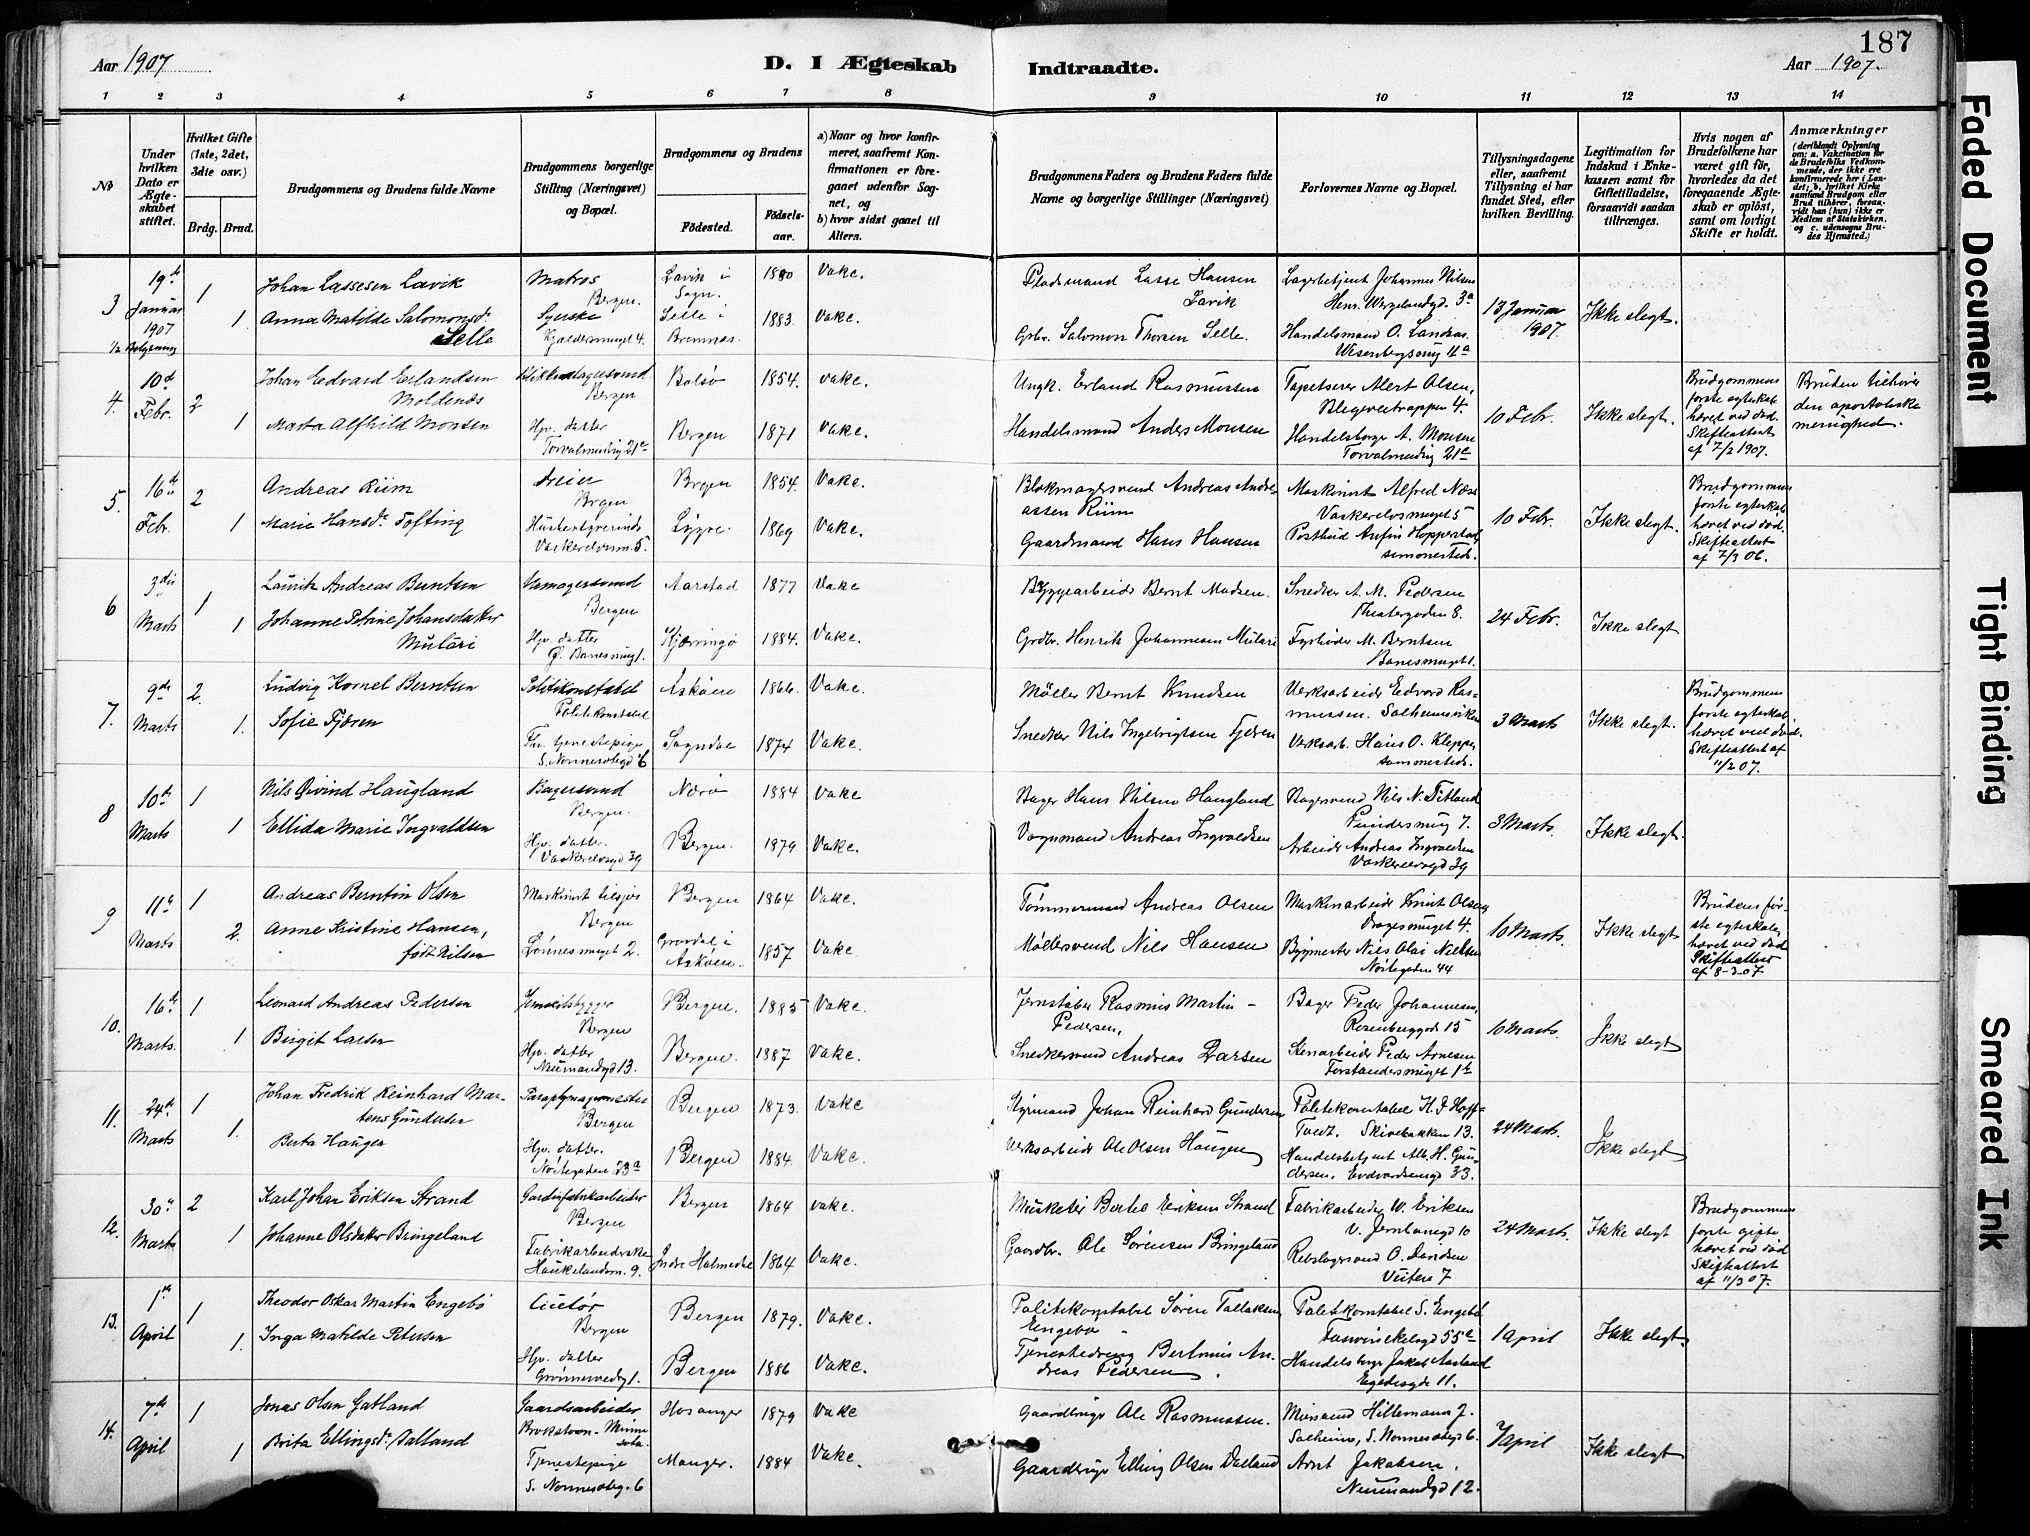 187
Aar 1907
D. I Ægteskab
Indtraadte.
Aar 1907.
1 2 3 4 5 6 7 8 9 10 11 12 13 14
No
Under hvilken Dato er Ægteskabet stiftet.
Hvilket Gifte (1ste, 2det, 3die osv.)
Brdg. Brud.
Brudgommens og Brudens fulde Navne
Brudgommens borgerlige Stilling (Næringsvei) og Bopæl.
Brudgommens og Brudens
Fødested.
Fødselsaar.
a) Naar og hvor konfirmeret, saafremt Konfirmationen er foregaaet udenfor Sognet, og
b) hvor sidst gaaet til Alters.
Brudgommens Faders og Brudens Faders fulde Navne og borgerlige Stillinger (Næringsvei)
Forlovernes Navne og Bopæl.
Tillysningsdagene eller, saafremt Tillysning ei har fundet Sted, efter hvilken Bevilling.
Legitimation for Indskud i Enkekassen samt for Giftetilladelse, forsaavidt saadan tiltrænges.
Hvis nogen af Brudefolkene har været gift før, hvorledes da det foregaaende Ægteskab er opløst, samt om lovligt Skifte er holdt.
Anmærkninger (deriblandt Oplysning om: a. Vakcination for de Brudefolks Vedkommende, der ikke ere konfirmerede her i Landet; b. hvilket Kirkesamfund Brudgom eller Brud tilhører, forsaavidt han (hun) ikke er Medlem af Statskirken, og c. udensogns Brudes Hjemsted.)
3 19de Januar 1907 1 Johan Lassesen Lavik Matros Bergen. Lavik i Sogn. 1880 Vake. Pladsmand Lasse Hansen Lavik Lagerbetjent Johannes Nilsen Henr. Wergelandgd. 3a 13 Januar 1907. Ikke slegt.
1 Anna Matilde Salomonsd. Selle Syerske Kjeldersmuget 4. Selle i Bremnes. 1883. Vake. Gbr. Salomon Thorsen Selle. Handelsmand O. Landaas Wesenbergsmug 4a
4. 10de Febr. 2 Johan Edvard Erlandsen Moldenæs Blikkenslagersvend Bergen Bolsø 1854. Vake. Ungk. Erland Rasmussen Tapetserer Alert Olsen, Blegeveitrappen 4. 10 Febr. Ikke slegt. Brudgommens første egteskab hævet ved død. Skifteattest af 7/2 1907. Bruden tilhører den apostoliske menighed.
1 Marta Alfhild Monsen Hjv. datter Torvalmening 21c Bergen 1871 Vake. Handelsmand Anders Monsen Handelsborger A. Monsen Torvalmending 21c
5. 16de Febr. 2 Andreas Riim Dreier Bergen Bergen 1854. Vake. Blokmagersvend Andreas Andreassen Riim Maskinist Alfred Næss Vaskerelvsmuget 5 10 Febr. Ikke slegt. Brudgommens første egteskab hævet ved død. Skifteattest af 7/3 06.
1 Marie Hansd. Tofting Husbestyrerinde Vaskerelvsm. 5. Lygre. 1869 Vake. Gaardmand Hans Hansen Postbud Anfin Hopperstad sammesteds.
6 3die Marts 1 Laurits Andreas Berntsen Bergen Aarstad 1877 Vake Byggearbeider Bernt Madsen. Snedker A. M. Pedersen Theatergaden 8. 24 Febr. Ikke slegt
1 Johanne Petrine Johansdatter Hjv. datter Ø. Banesmug 1. Kjæringø 1884. Vake. Grdbr. Henrik Johannesen Fyrbøder M. Berntsen Banesmuget 1.
7. 9de Marts 2. Ludvig Kornel Berntsen Politikonstabel Askøen 1866. Vake. Møller Bernt Knudsen Verksarbeider Edvard Rasmussen. Solheimsviken 3 Marts Ikke slegt. Brudgommens første egteskab hævet ved død. Skifteattest af 11/2 07.
1. Sofie Fjøren Fhv. tjenestepige S. Nonnesætergd 6 Sogndal 1874 Vake. Snedker Nils Ingebrigtsen Fjøren Verksarb. Hans O. Kleppe sammesteds.
8 10de Marts 1 Nils Øivind Haugland Bagersvend Bergen. Nærø 1884 Vake Bager Hans Nilsen Haugland Bagersvend Nils N. Titland Pundersmug 7. 3 Marts. Ikke slegt.
1 Ellida Marie Ingvaldsen Hjv. datter Vaskerelvsgd 39 Bergen. 1879. Vake. Vognmand Andreas Ingvaldsen Arbeider Andreas Ingvaldsen Vaskerelvsgd 39
9 11te Marts 1 Andreas Berntin Olsen Maskinist tilsjøs Bergen Bergen 1864 Vake. Tømmermand Andreas Olsen Maskinarbeider Knut Olsen Dragesmuget 4. 10 Marts. Ikke slegt Brudens første egteskab hævet ved død Skifteattest af 8-3-07.
2. Anne Kristine Hansen, født Nilsen 2. Gravdal i Askøen. 1857 Vake. Møllersvend Nils Hansen Bygmester Nils Olai Nielsen Nøstegaden 44
10. 16de Marts. 1 Leonard Andreas Pedersen Jernskibsbygger Bergen Bergen. 1885 Vake. Jernstøber Rasmus Martin Pedersen, Bager Peder Johannesen, Rosenberggd. 15 10 Marts. Ikke slegt
1 Birgit Larsen Hjv. datter Neumandgd 13. Bergen. 1887 Vake. Snedkersvend Andreas Larsen Stenarbeider Peder Arnesen Forstandersmuget 1b
11. 24de Marts 1 Johan Fredrik Reinhard Martens Gundersen Paraplymagermester Bergen Bergen 1873. Vake Styrmand Johan Reinhard Gundersen Politikonstabel H. J. Hofftvedt. Skivebakken 13. 24 Marts. Ikke slegt
1. Berta Haugen Hjv. datter. Nøstegaden 23a Bergen 1884. Vake. Verksarbeider Ole Olsen Haugen Handelsbetjent Alb. H. Gundersen, Edvardsensgd 33.
12. 30te Marts 2 Karl Johan Eriksen Strand Bergen Bergen 1864 Vake. Musketer Bertel Eriksen Strand Fabrikarbeider W. Eriksen v. Jernbanegd 10 24 Marts. Ikke slegt Brudgommens første gifte hævet ved død Skifteattest af 11/3 07.
1 Johanne Olsdatter Bringeland Fabrikarbeiderske Haukelandsv. 9. Indre Holmedal 1864 Vake. Gaardbr. Ole Sørensen Bringeland Rebslagersvend O. Davidsen Veiten 7
13. 1ste April 1 Theodor Oskar Martin Engebø Bergen Bergen 1879. Vake. Politikonstabel Søren Tollaksen Engebø Politikonstabel S. Engebø 55a 1 April Ikke slegt.
1. Inga Matilde Petersen Hjv. datter 1. Bergen 1886 Vake. Tjenestedreng Bertonius Andreas Pedersen. Handelsborger Jakob Aasland Egedesgde 11.
14. 7de April 1 Jonas Olsen Gatland Gaardsarbeider Brokstoon - Minnesota. Hosanger 1879 Vake Gaardbruger Ole Rasmussen. Mursvend Hillemann J. Solheim, S. Nonnesætergd 6. 7 April Ikke slegt
1 Brita Ellingsd. Dalland Tjenestepige S. Nonnesæterg. 6 Manger. 1884 Vake. Gaardbruger Elling Olsen Dalland Arnt Jakobsen, Neumandgd 12.
Faded Document
Tight Binding
Smeared Ink